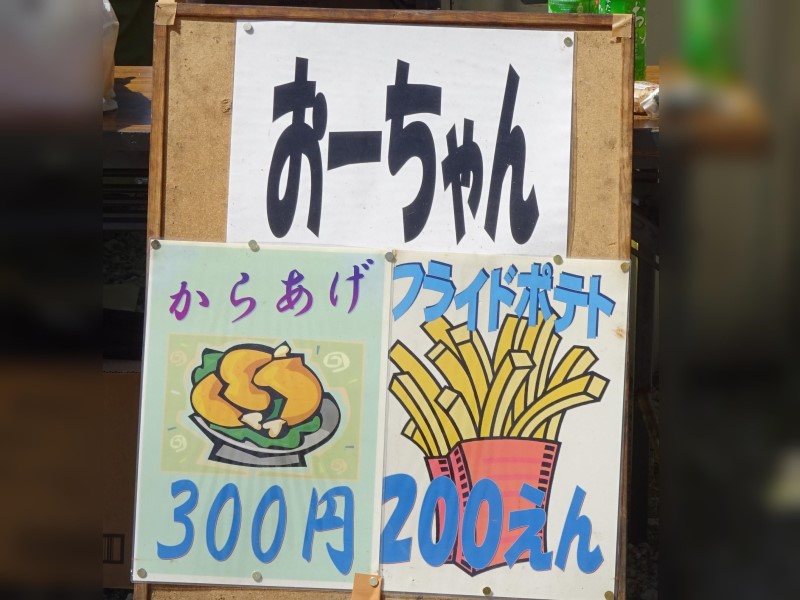 おーちゃん
からあげ
300円
フライドポテト
200えん